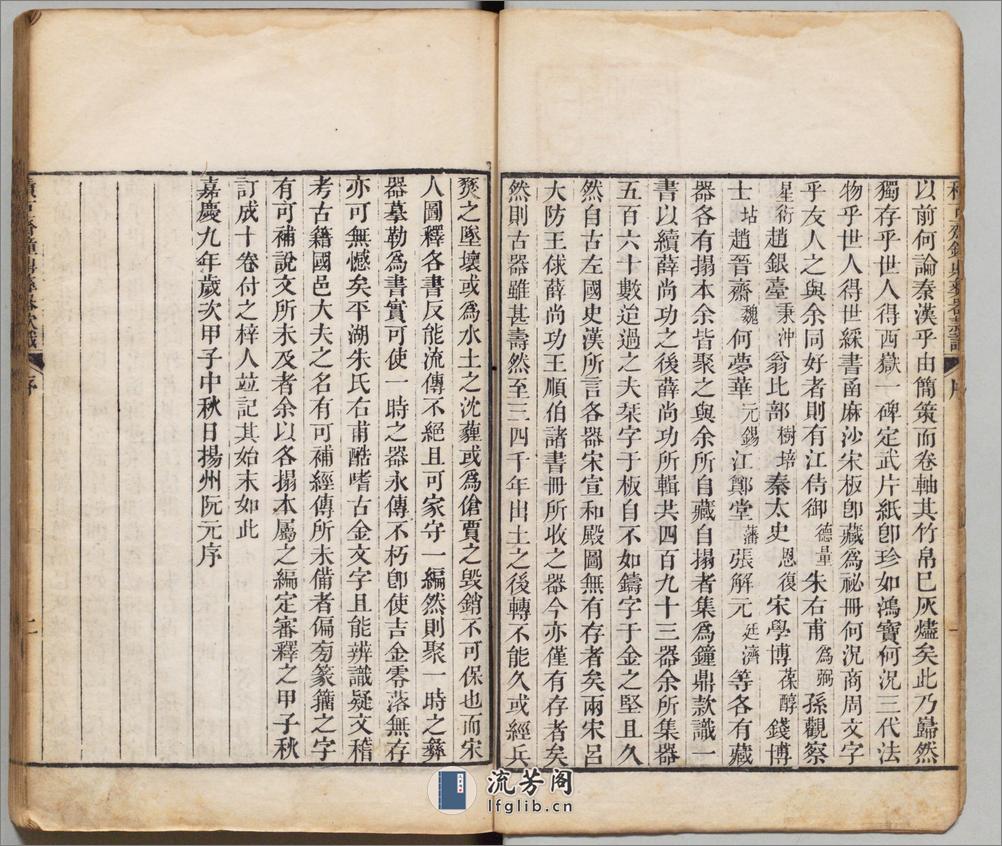 以前何論秦漢乎由簡策而卷軸其竹帛已灰燼矣此乃巋然
獨存乎世人得西嶽一碑定武片紙卽珍如鴻寶何況三代法
物乎世人得世綵書函麻沙宋板卽藏爲祕冊何況商周文字
乎友人之與余同好者則有江侍御德量朱右甫爲弼孫觀察
星衍趙銀臺秉沖翁比部樹培秦太史恩復宋學博葆醇錢博
士坫趙晉齋魏何夢華元錫江鄭堂藩張解元廷濟等各有藏
器各有搨本余皆聚之與余所自藏自搨者集爲鐘鼎款識一
書以續薛尚功之後薛尚功所輯共四百九十三器余所集器
五百六十數迨過之夫栞字于板自不如鑄字于金之堅且久
然自古左國史漢所言各器宋宣和殿圖無有存者矣兩宋呂
大防王俅薛尚功王順伯諸書冊所收之器今亦僅有存者矣
然則古器雖甚壽然至三四千年出土之後轉不能久或經兵
燹之墜壞或爲水土之沈薶或爲傖賈之毀銷不可保也而宋
人圖釋各書反能流傳不絕且可家守一編然則聚一時之彝
器摹勒爲書實可使一時之器永傳不朽卽使吉金零落無存
亦可無憾矣平湖朱氏右甫酷嗜古金文字且能辨識疑文稽
考古籍國邑大夫之名有可補經傳所未備者偏旁篆籀之字
有可補說文所未及者余以各搨本屬之編定審釋之甲子秋
訂成十卷付之梓人並記其始末如此
嘉慶九年歲次甲子中秋日揚州阮元序
序
二
流芳阁
lfglib.cn